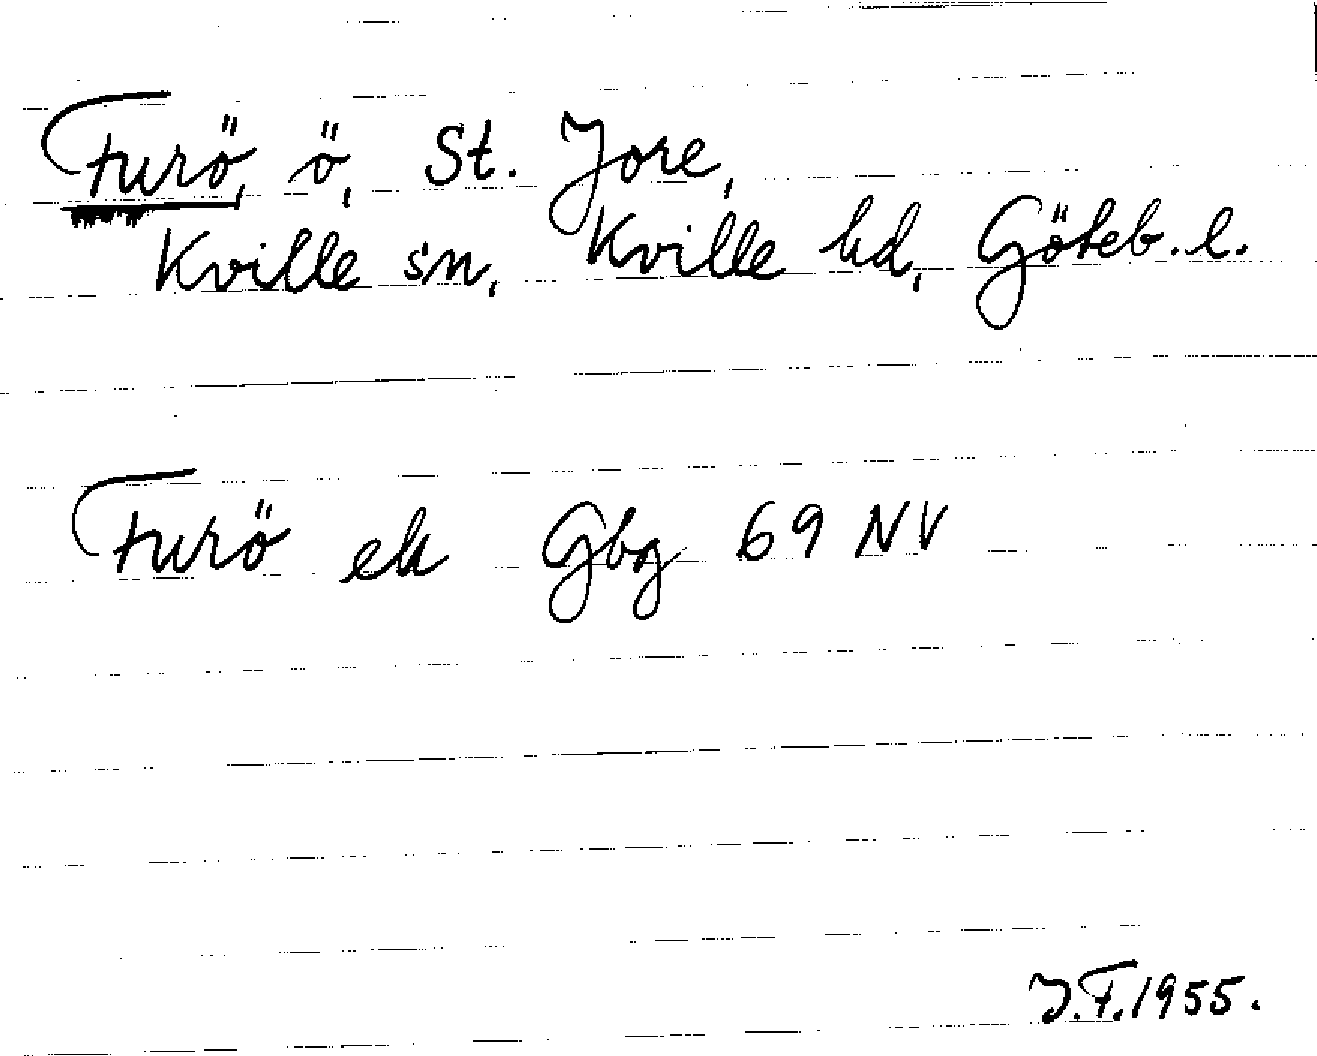 Furö, ö, St. Jore,
Kville sn, Kville hd, Göteb. l.
Furö ek Gbg 69 NV
J.F. 1955.